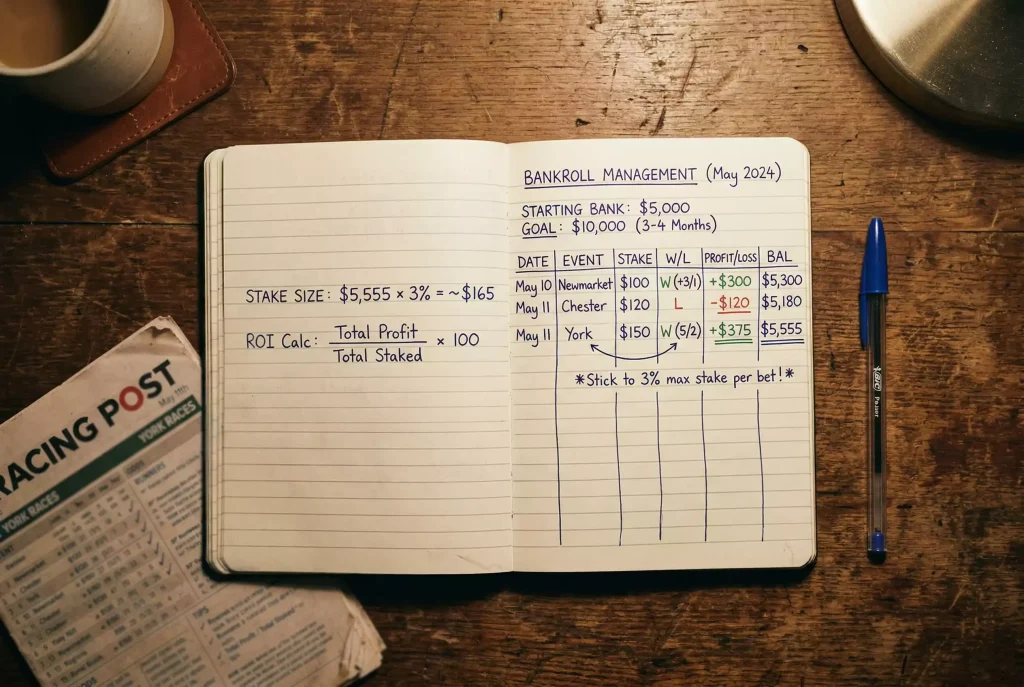 STAKE SIZE: $5,555 × 3% = ~$165
ROI Calc: Total Profit / Total Staked × 100
BANKROLL MANAGEMENT (May 2024)
STARTING BANK: $5,000
GOAL: $10,000 (3-4 Months)
DATE EVENT STAKE W/L PROFIT/LOSS BAL
May 10 Newmarket $100 W (+3/1) +$300 $5,300
May 11 Chester $120 L -$120 $5,180
May 11 York $150 W (5/2) +$375 $5,555
*Stick to 3% max stake per bet!*
RACING POST
May 11th
YORK RACES
YORK RACES
RUNNERS
TIPS
BIC